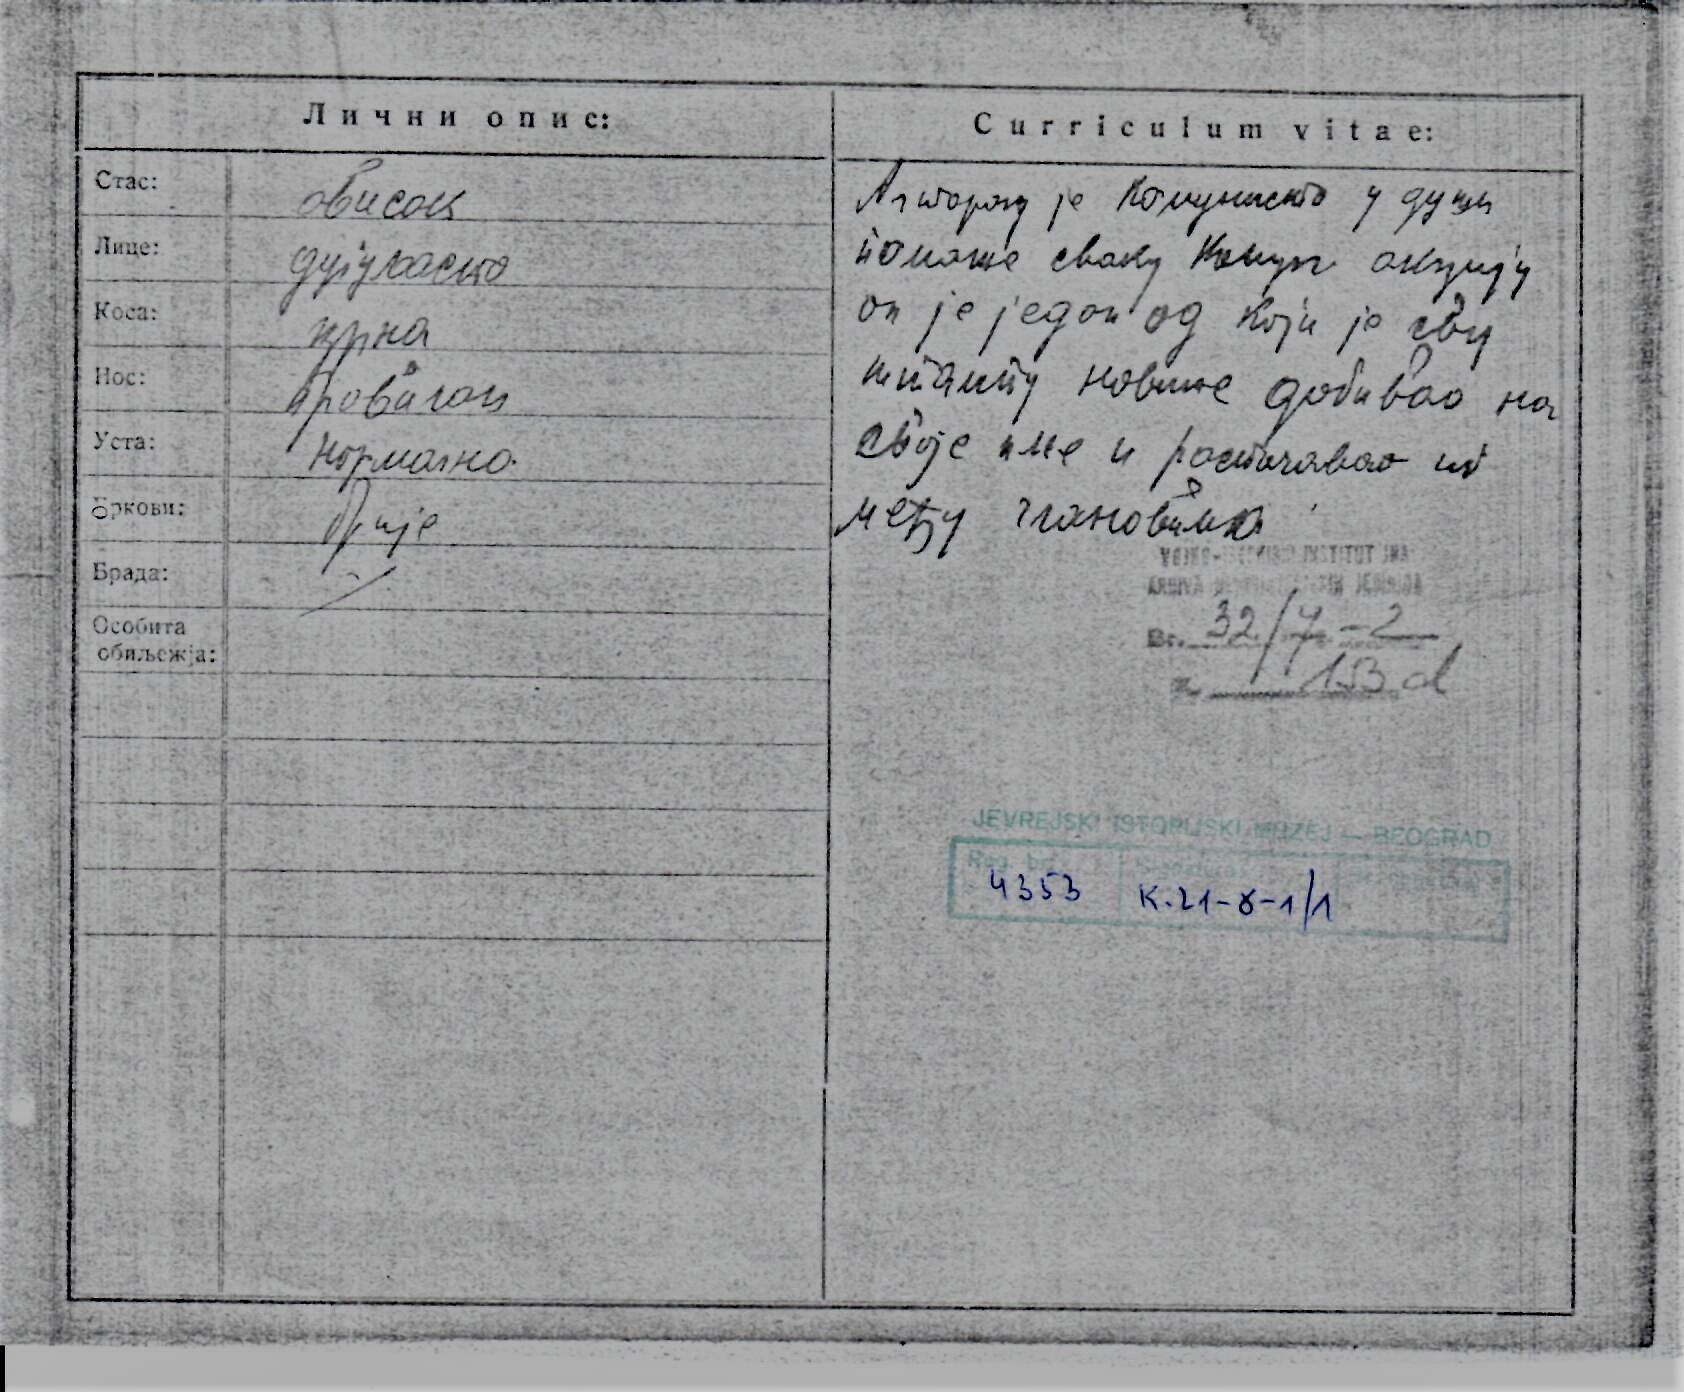 Лични опис:
Curriculum vitae:
Стас:
овисок
Лице:
дугуљасто
Коса:
црна
Нос:
правилан
Уста:
нормална
Бркови:
брије
Брада:
Особита
обиљежја:
је Комуниста у души
помаже сваку Комун. акцију
он је један од који је сву
штампу новине добивао на
своје име и растуравао их
међу члановима
VOJNO-ISTORISKI INSTITUT JNA
ARHIVA NEPRIJATELJSKIH JEDINICA
Br. 32/7-2
K. 153 d
JEVREJSKI ISTORIJSKI MUZEJ — BEOGRAD
Reg. br. Signatura
4353 K.21-8-1/1